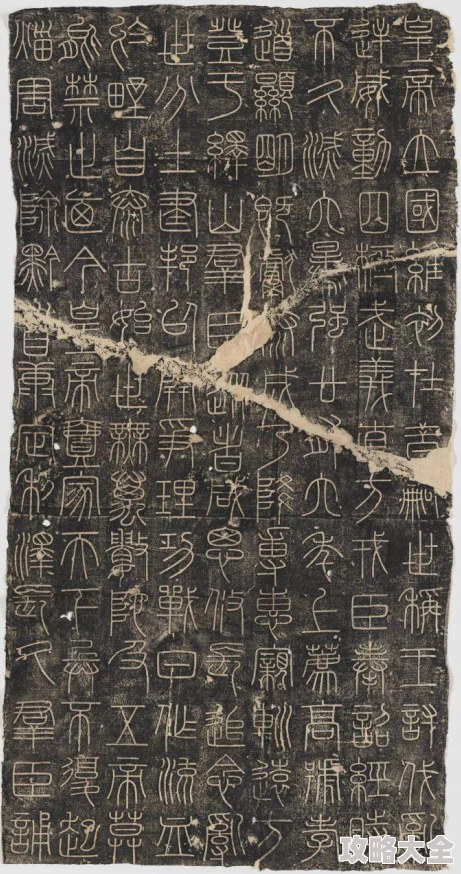 皇帝立國維初在昔嗣世稱王討伐亂
逆威動四極武義直方戎臣奉詔經時
不久滅六暴強廿有六年上薦高號孝
道顯明既獻泰成乃降專惠親巡遠方
登于繹山群臣從者咸思攸長追念亂
世分土建邦以開爭理功戰日作流血
於野自泰古始世無萬數陀及五帝莫
能禁止廼今皇帝壹家天下兵不復起
災害滅除黔首康定利澤長久群臣誦
攻略大全